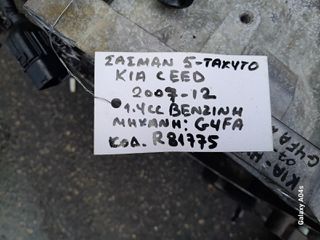 ΣΑΣΜΑΝ 5-ΤΑΧΥΤΟ
KIA CEED
2007-12
1.4cc ΒΕΝΖΙΝΗ
ΜΗΧΑΝΗ: G4FA
ΚΩΔ. R81775
KIA-
G4FA
Galaxy A04s